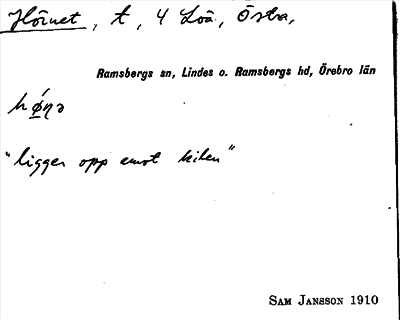 Hörnet, t, 4 Löa, Östra,
Ramsbergs sn, Lindes o. Ramsbergs hd, Örebro län
hǿṇə
"ligger opp emot kilen"
SAM JANSSON 1910